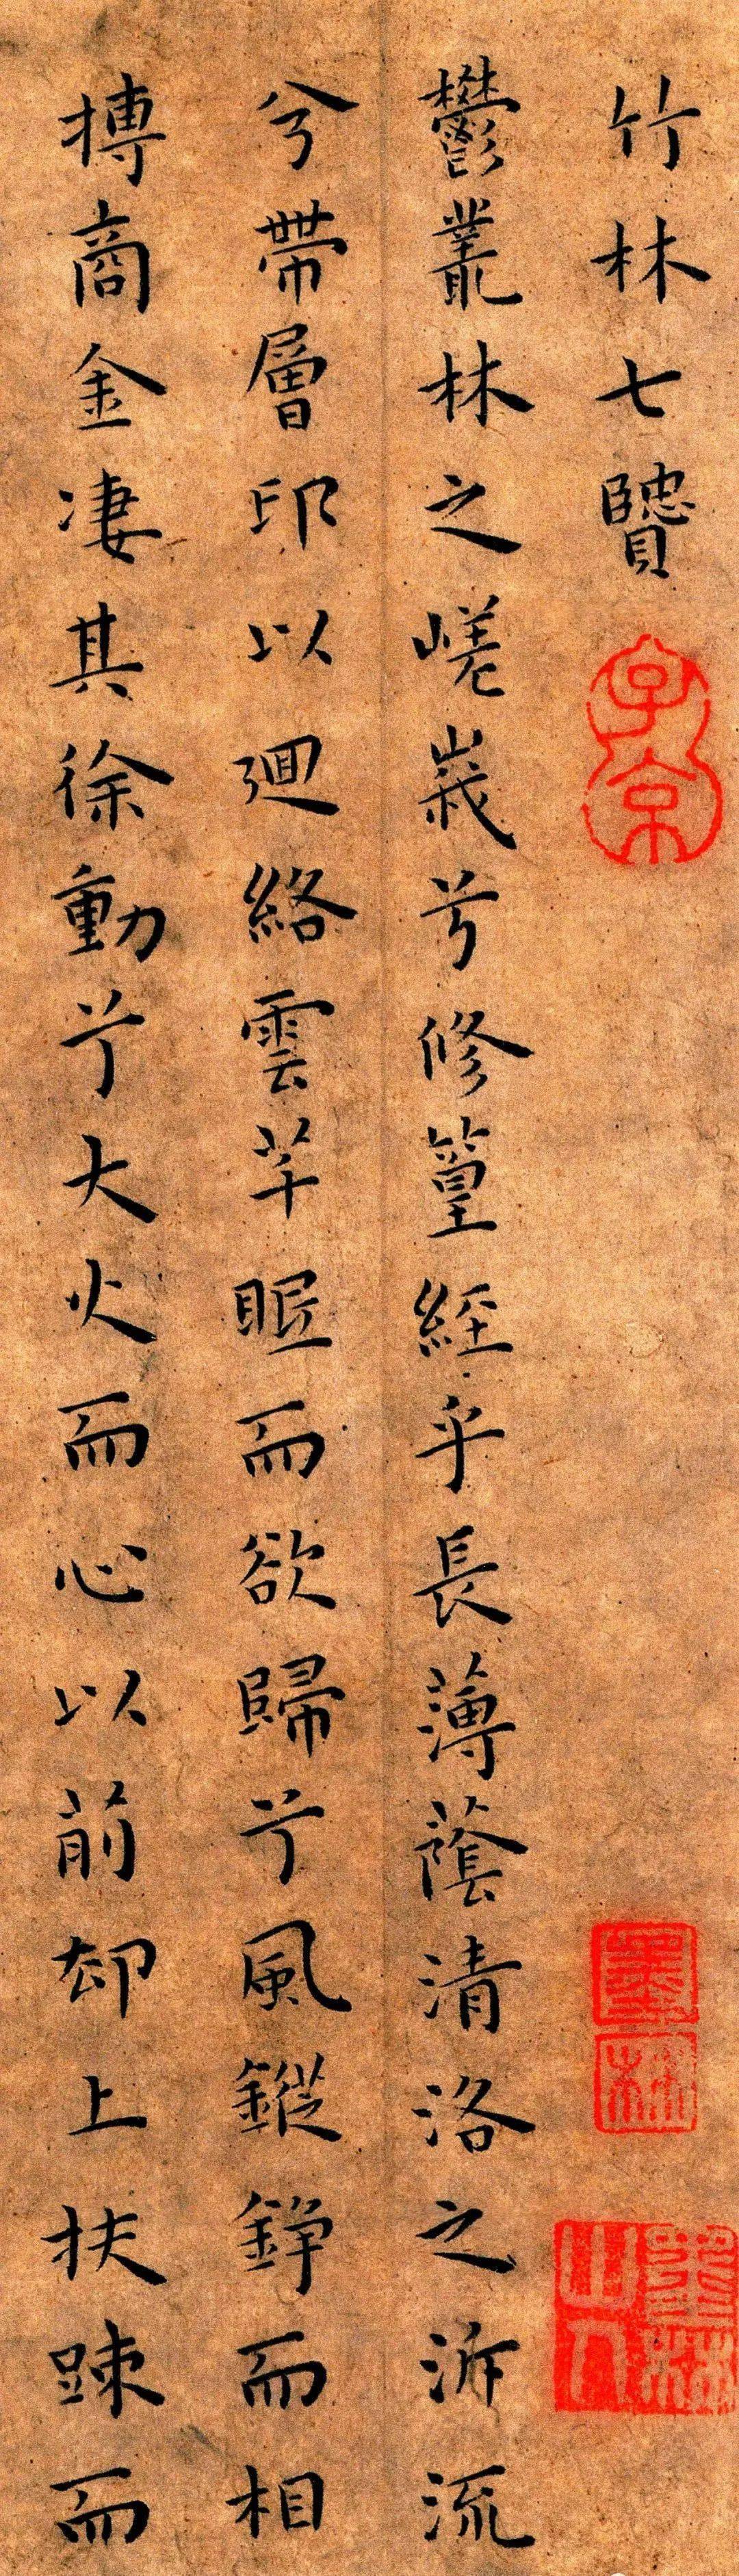 竹林七賢
鬱叢林之嵯峩兮修篁經乎長薄蔭清洛之泝流
兮帶層印以迴絡雲芊眠而欲歸兮風鏦錚而相
搏商金凄其徐動兮大火而心以前却上扶踈而
子京
墨林
墨林山人